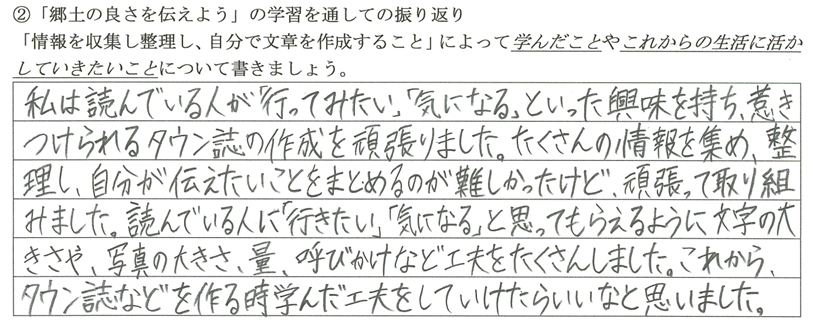 ②「郷土の良さを伝えよう」の学習を通しての振り返り
「情報を収集し整理し、自分で文章を作成すること」によって学んだことやこれからの生活に活か
していきたいことについて書きましょう。
私は読んでいる人が「行ってみたい」「気になる」といった興味を持ち、惹き
つけられるタウン誌の作成を頑張りました。たくさんの情報を集め、整
理し、自分が伝えたいことをまとめるのが難しかったけど、頑張って取り組
みました。読んでいる人に「行きたい」「気になる」と思ってもらえるように文字の大
きさや、写真の大きさ、量、呼びかけなど工夫をたくさんしました。これから、
タウン誌などを作る時学んだ工夫をしていけたらいいなと思いました。